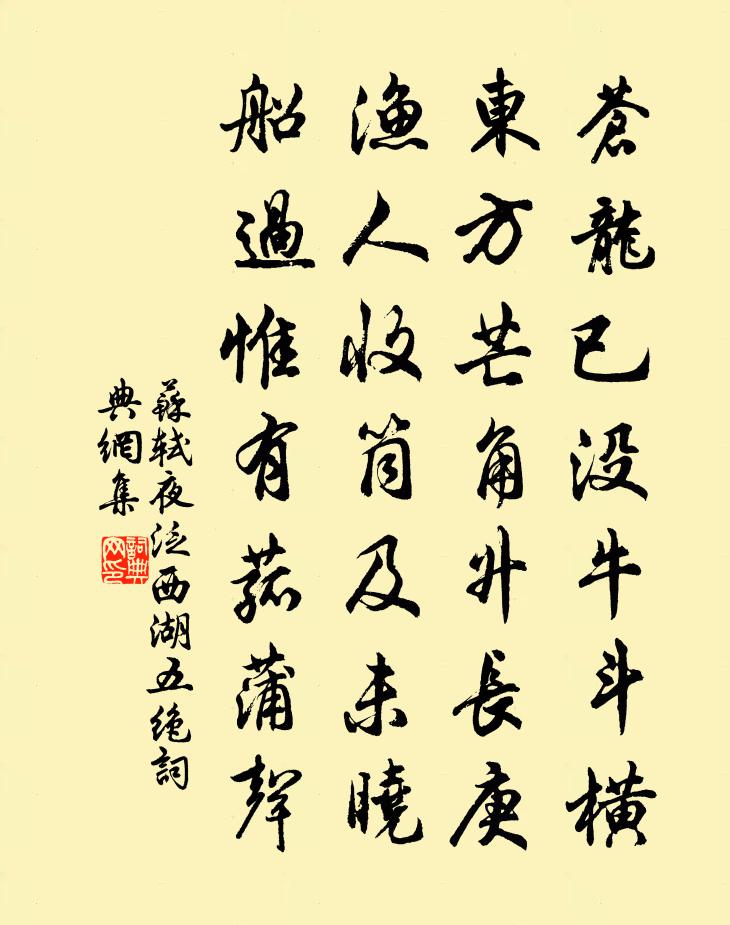 蒼龍已没牛斗橫
東方芒角升長庚
漁人收筒及未曉
船過惟有菰蒲聲
蘇軾夜泛西湖五絶詞
典網集
詞典
网印